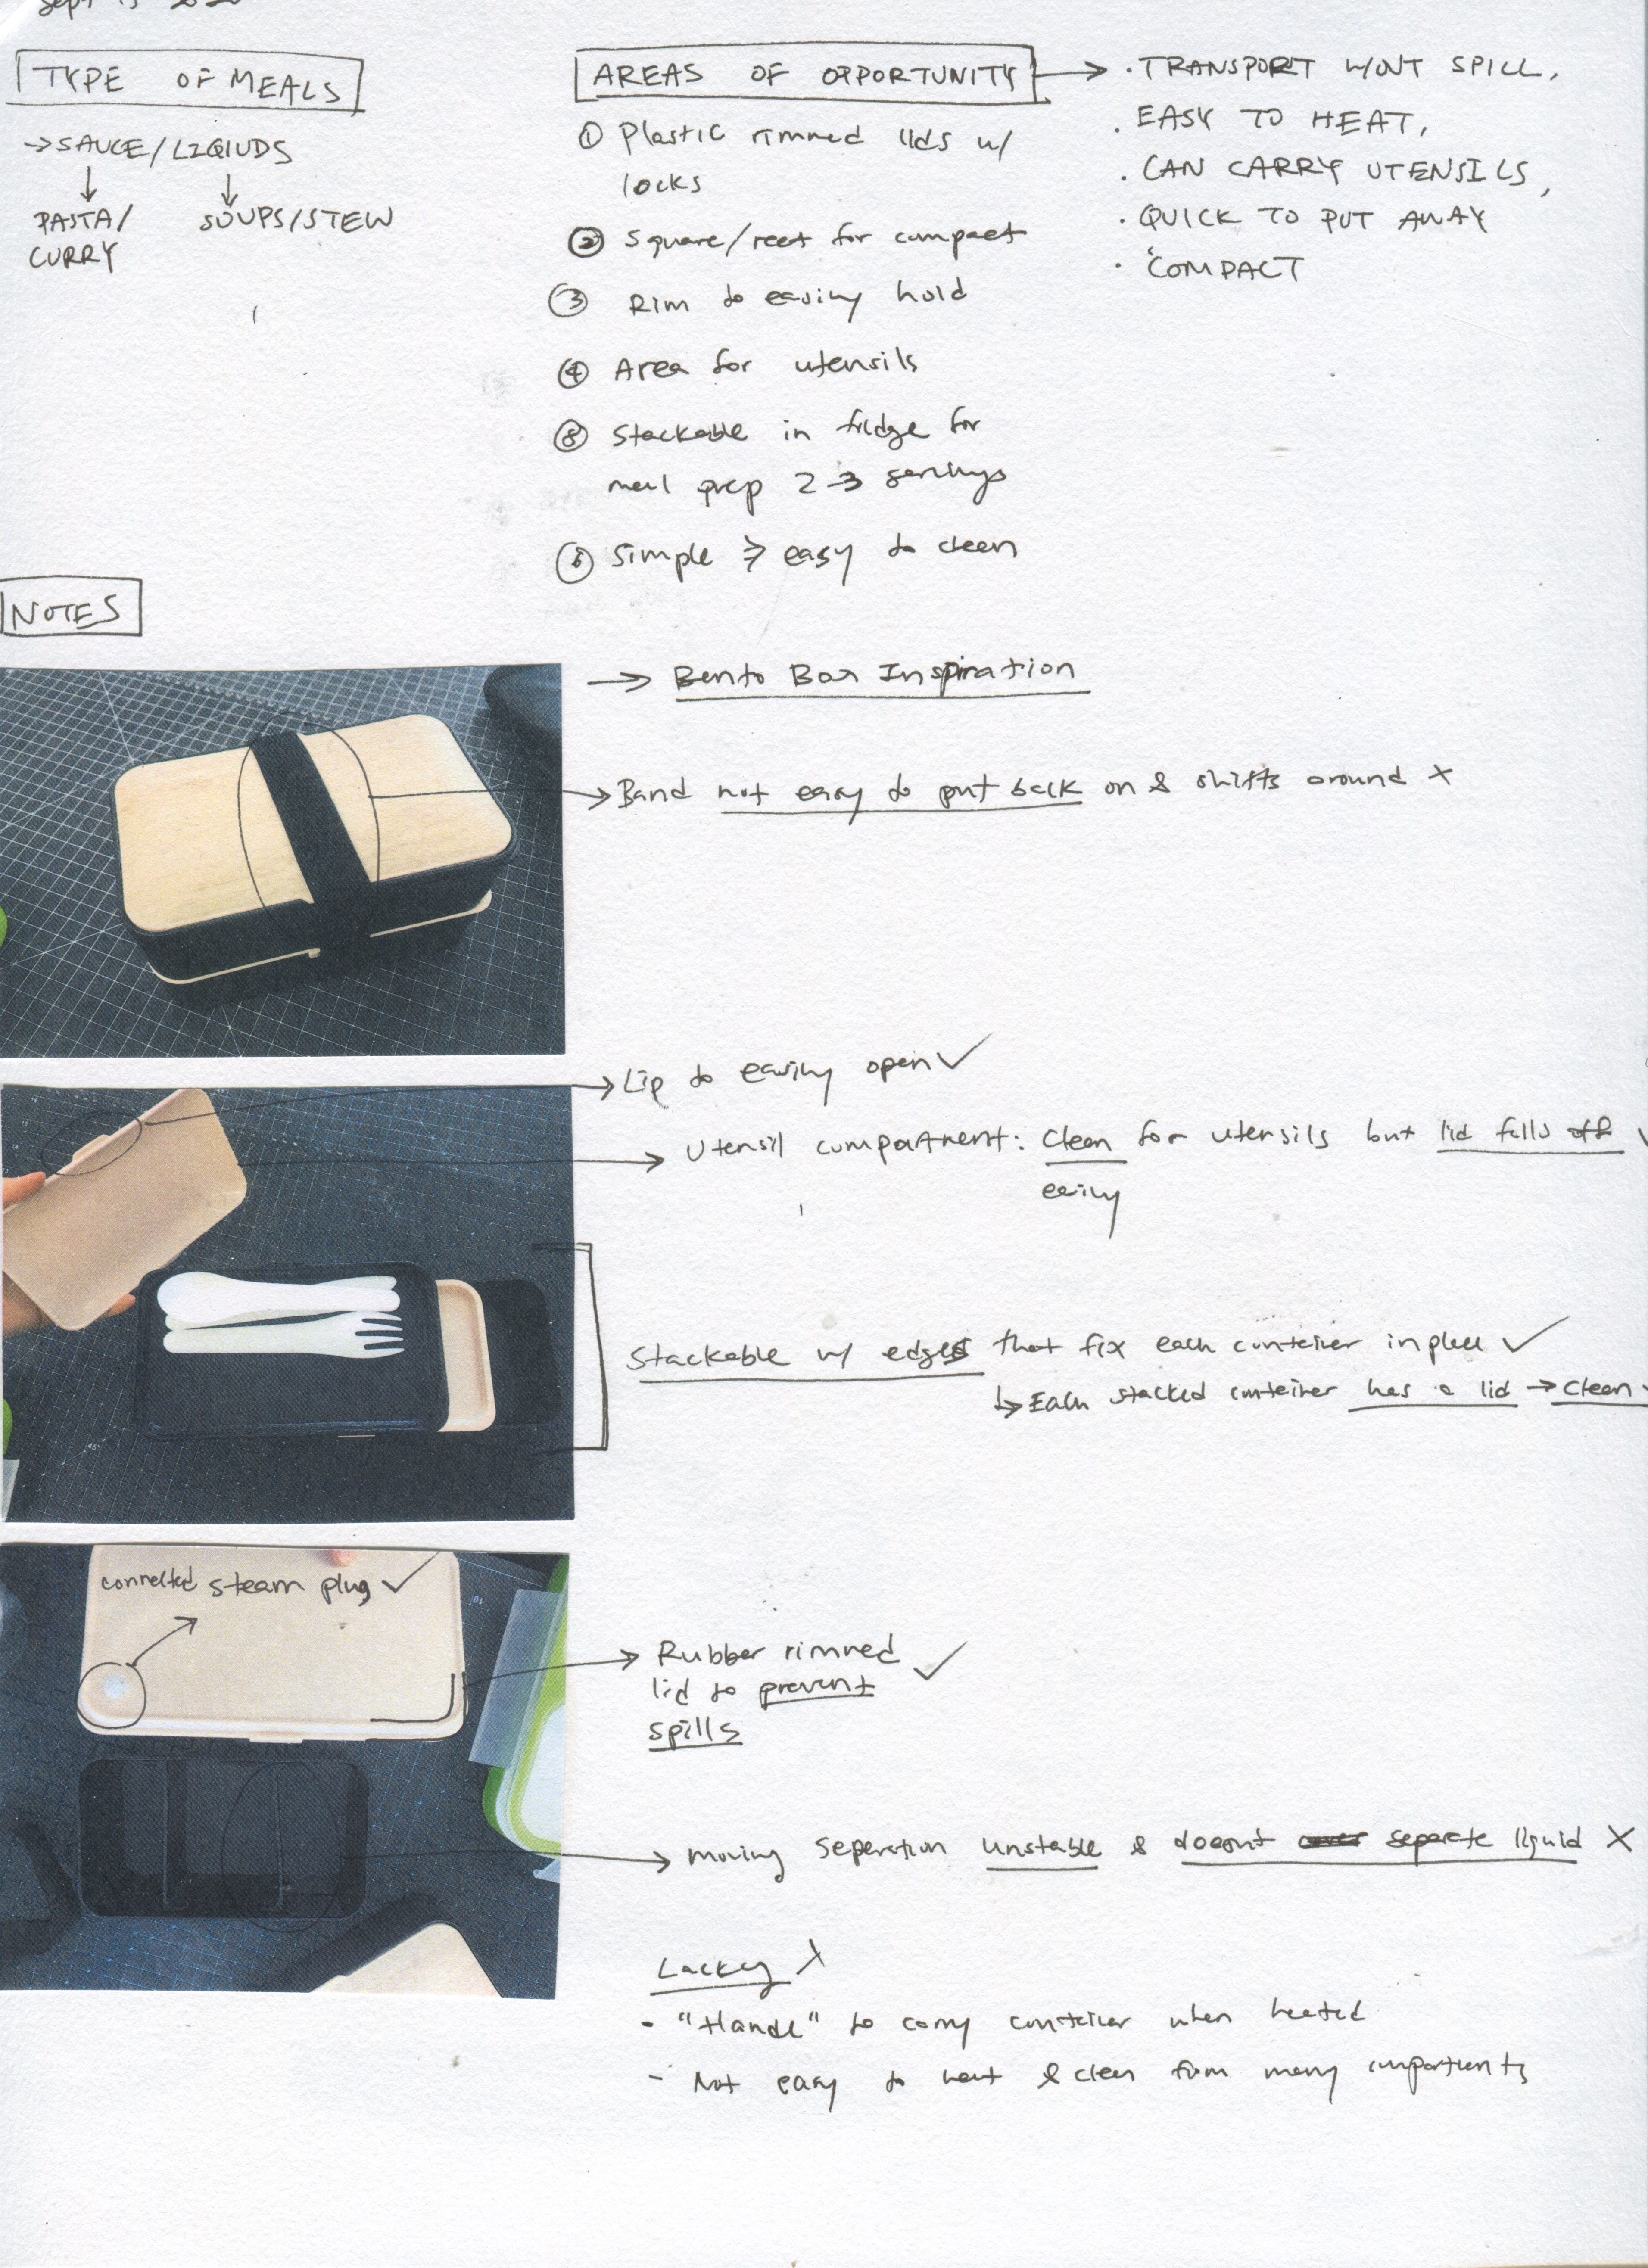 Sept 15
TYPE OF MEALS
→ SAUCE/LIQIUDS
↓ ↓
PASTA/
CURRY
SOUPS/STEW
AREAS OF OPPORTUNITY →
① Plastic rimmed lids w/
locks
② Square/rect for compact
③ Rim to easily hold
④ Area for utensils
⑧ Stackable in fridge for
meal prep 2-3 servings
⑥ Simple → easy to clean
· TRANSPORT W/OUT SPILL,
· EASY TO HEAT,
· CAN CARRY UTENSILS,
· QUICK TO PUT AWAY
· COMPACT
NOTES
→ Bento Box Inspiration
→ Band not easy to put back on & shifts around X
→ Lip to easily open ✓
→ Utensil compartment: Clean for utensils but lid falls off
easily
Stackable w/ edges that fix each container in place ✓
↳ Each stacked container has a lid → clean
connected steam plug ✓
→ Rubber rimmed
lid to prevent
spills ✓
→ moving seperation unstable & doesnt seperate liquid X
Lacking X
- "Handle" to carry container when heated
- Not easy to heat & clean from many compartments